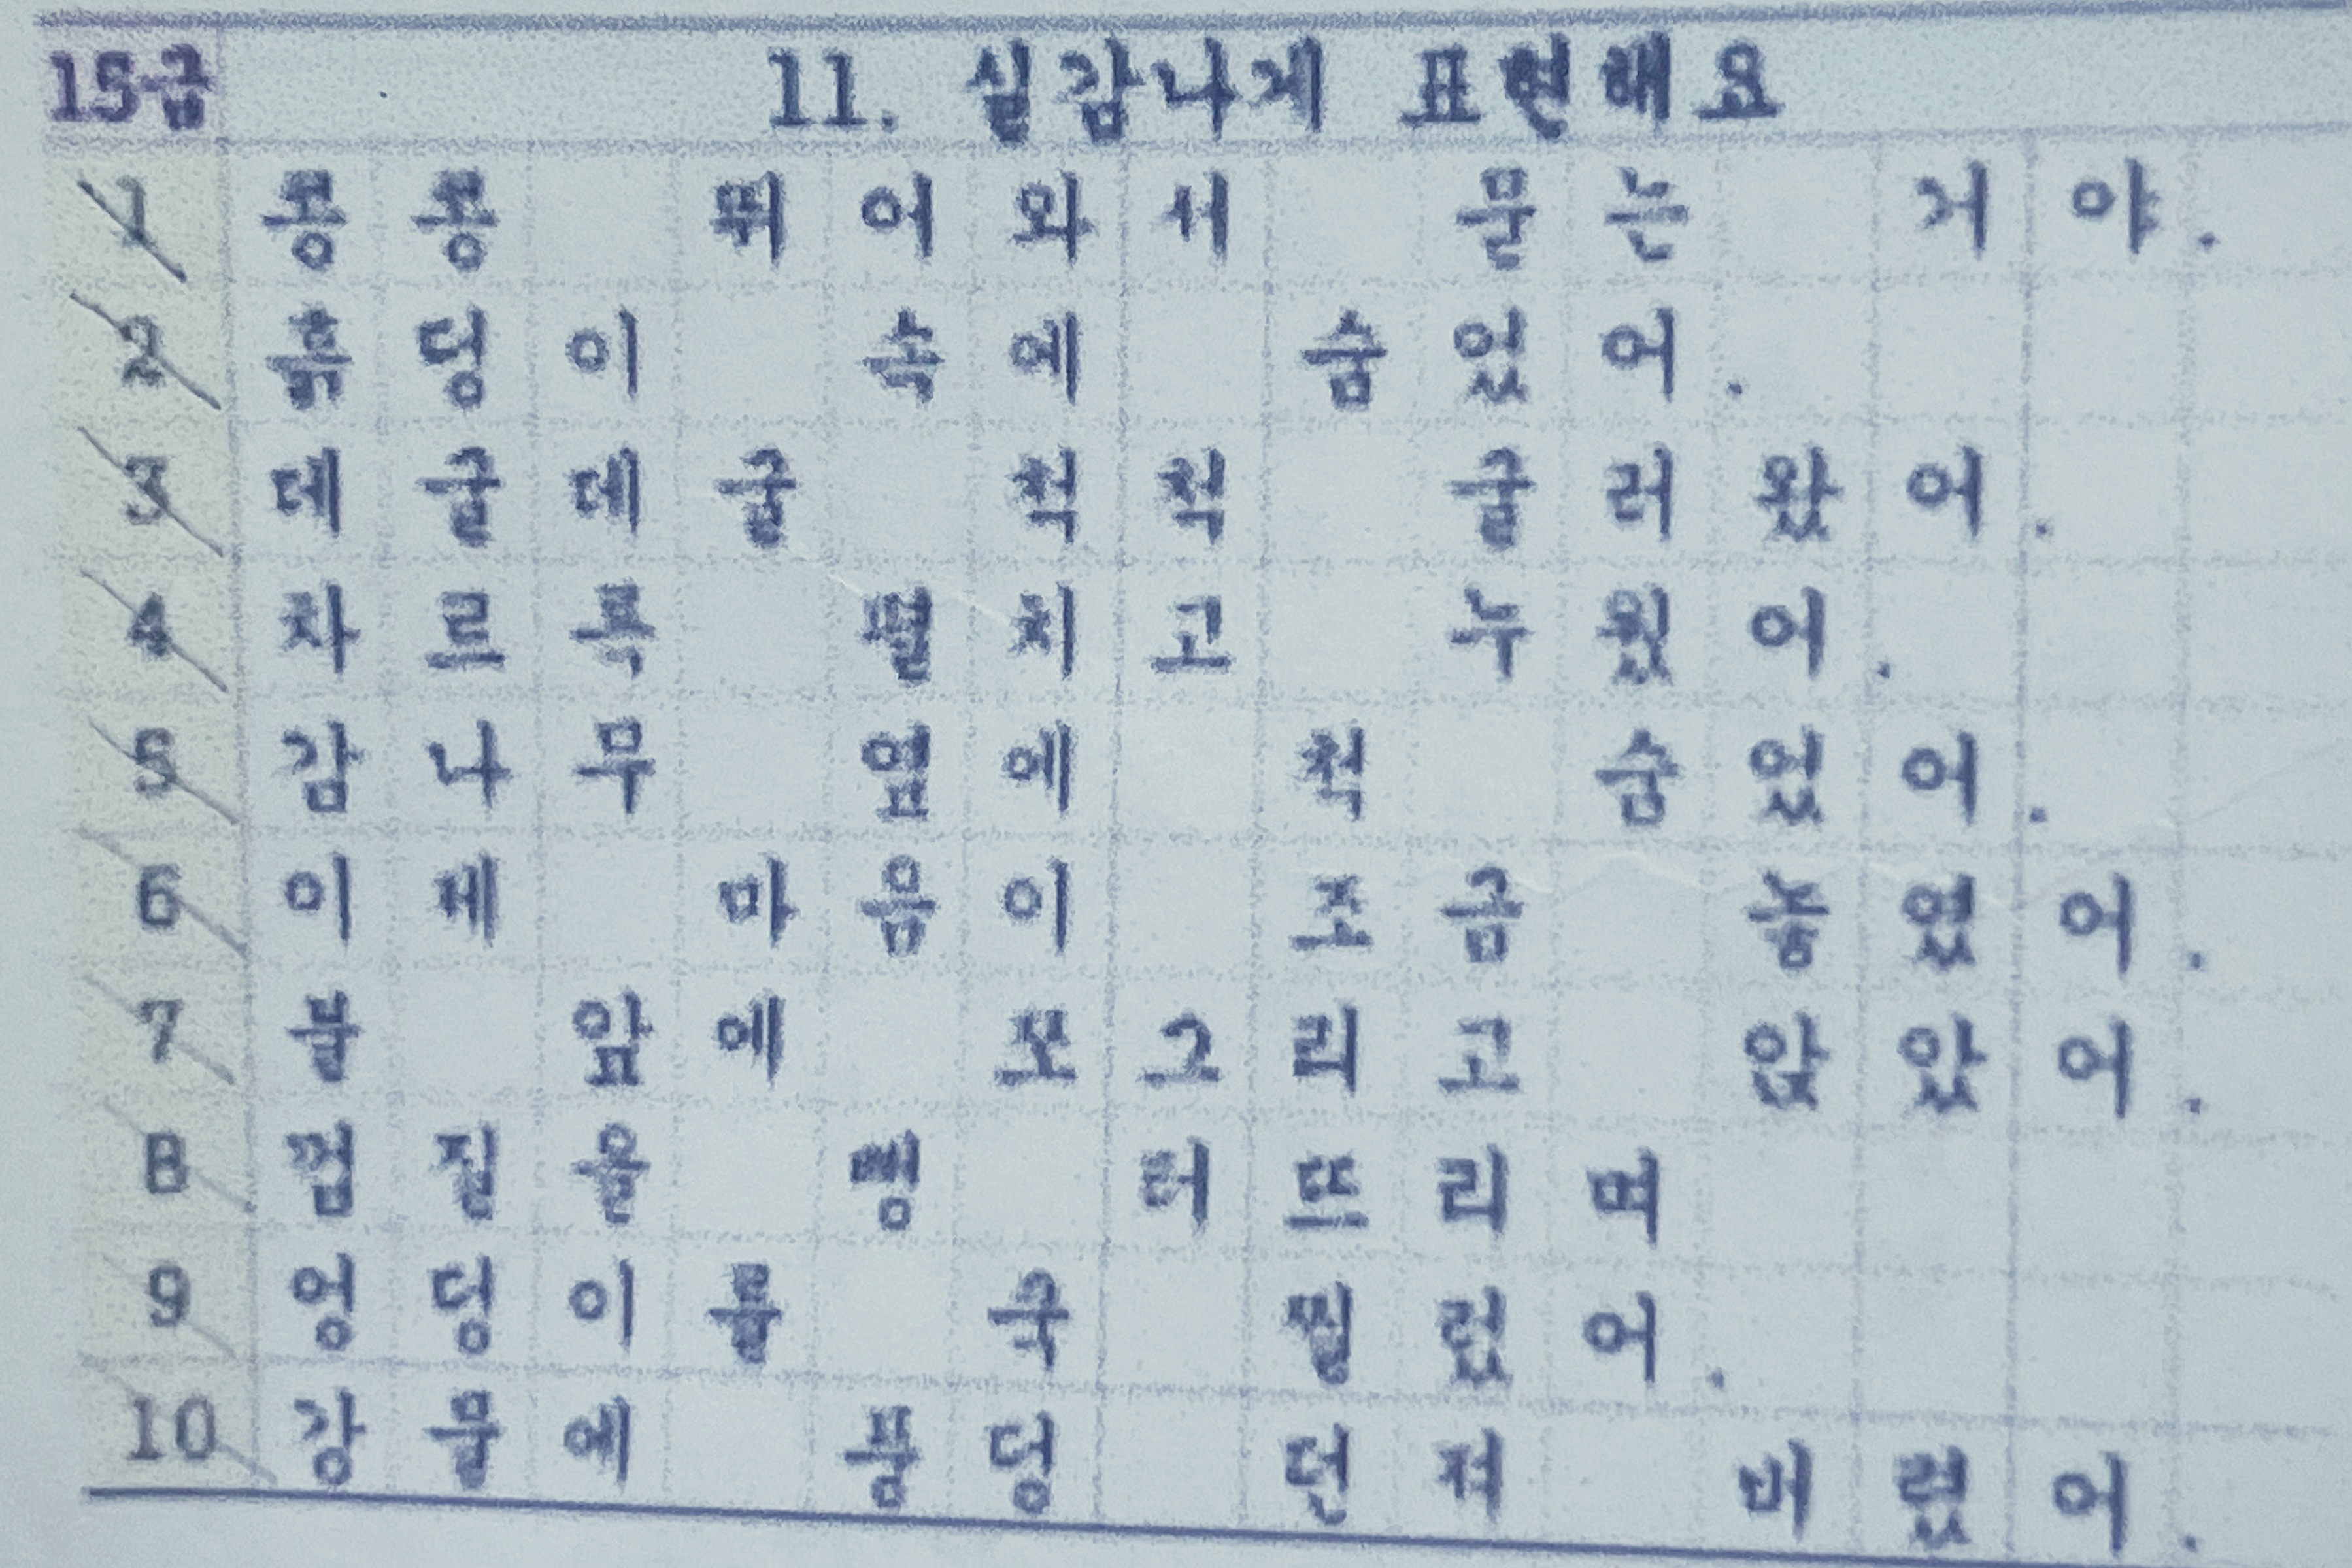 15급 11. 실감나게 표현해요
1 콩콩 뛰어와서 묻는 거야.
2 흙덩이 속에 숨었어.
3 데굴데굴 척척 굴러왔어.
4 차르륵 펼치고 누웠어.
5 감나무 옆에 척 숨었어.
6 이제 마음이 조금 놓였어.
7 불 앞에 쪼그리고 앉았어.
8 껍질을 뻥 터뜨리며
9 엉덩이를 쿡 찔렀어.
10 강물에 풍덩 던져 버렸어.